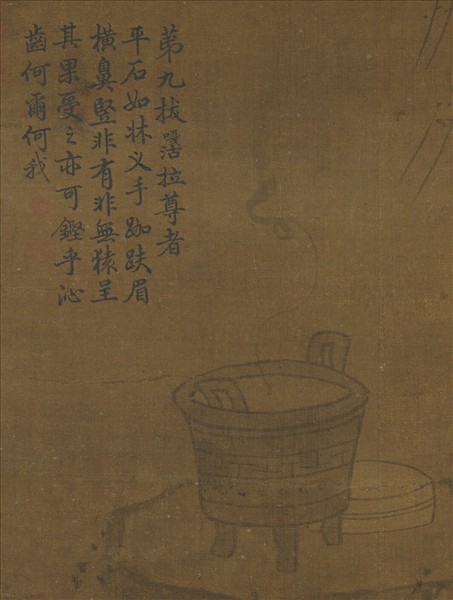 第九拔嘎沽拉尊者
平石如牀叉手跏趺眉
橫鼻豎非有非無猿呈
其果受之亦可鏗乎沁
齒何爾何我